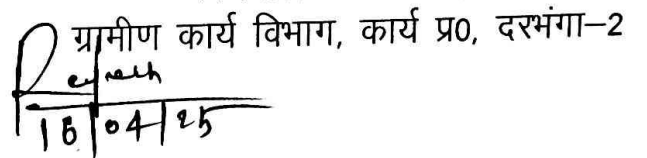 ग्रामीण कार्य विभाग, कार्य प्र0, दरभंगा–2
15/04/25